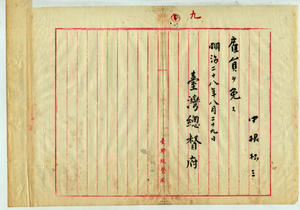 九
中根松
雇員ヲ免ス
明治二十八年八月二十九日
臺灣總督府
臺灣總督府